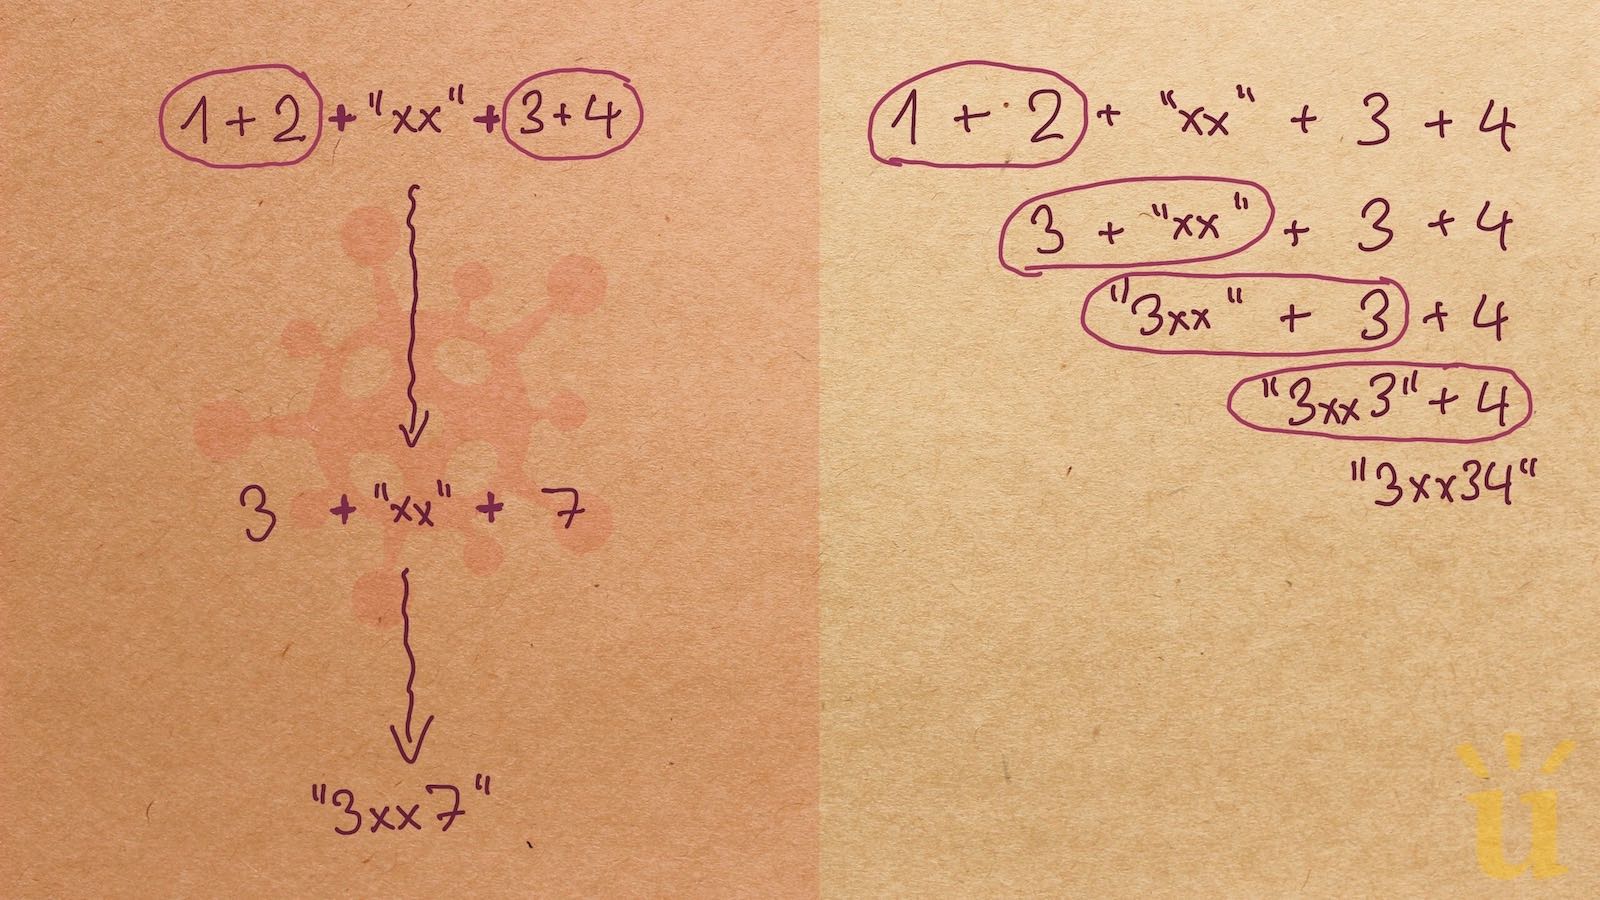 1 + 2 + "xx" + 3 + 4
3 + "xx" + 7
"3xx7"
1 + 2 + "xx" + 3 + 4
3 + "xx" + 3 + 4
"3xx" + 3 + 4
"3xx3" + 4
"3xx34"
u